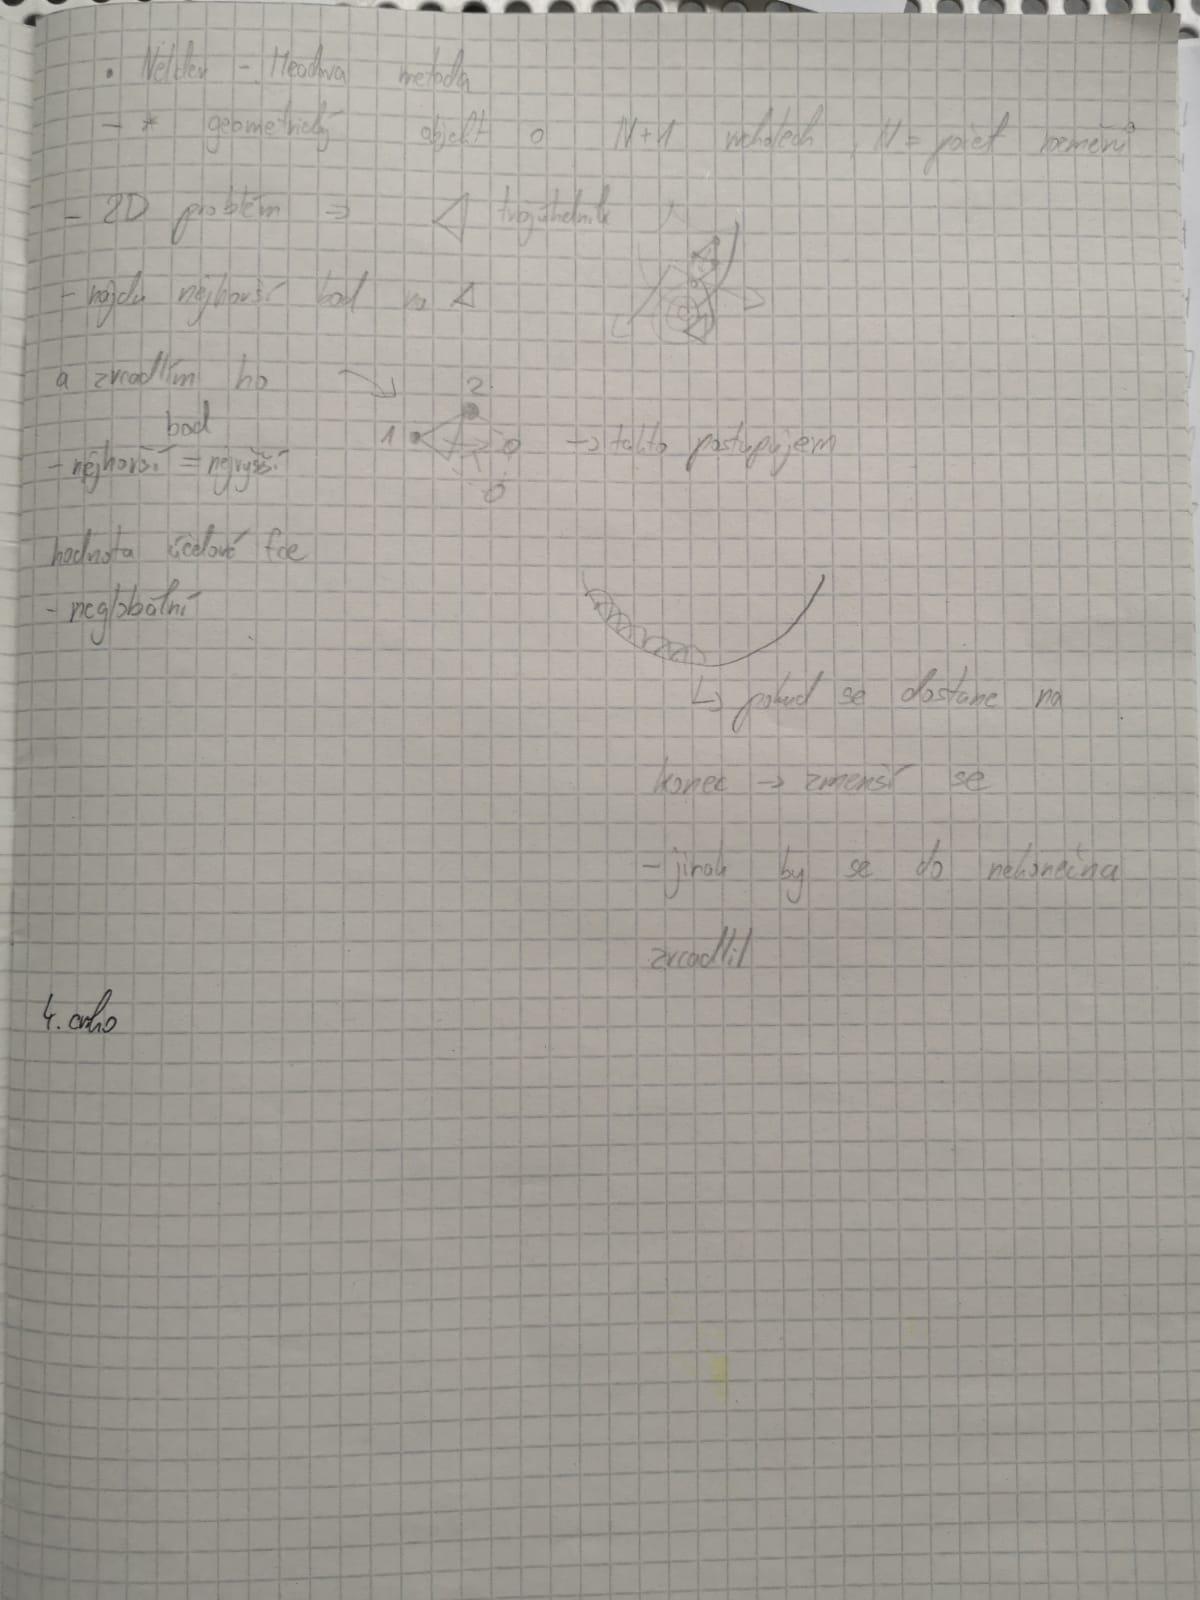 • Nelder - Meadova metoda
- * geometrický objekt o N+1 vrcholech, N = počet rozměrů
- 2D problém => trojúhelník
- najdu nejhorší bod na
a zrcadlím ho
2
bod
1
- nejhorší = nejvyšší
-> takto postupujem
hodnota účelové fce
- neglobální
pokud se dostane na
konec -> zmenší se
- jinak by se do nekonečna
zrcadlil
4.